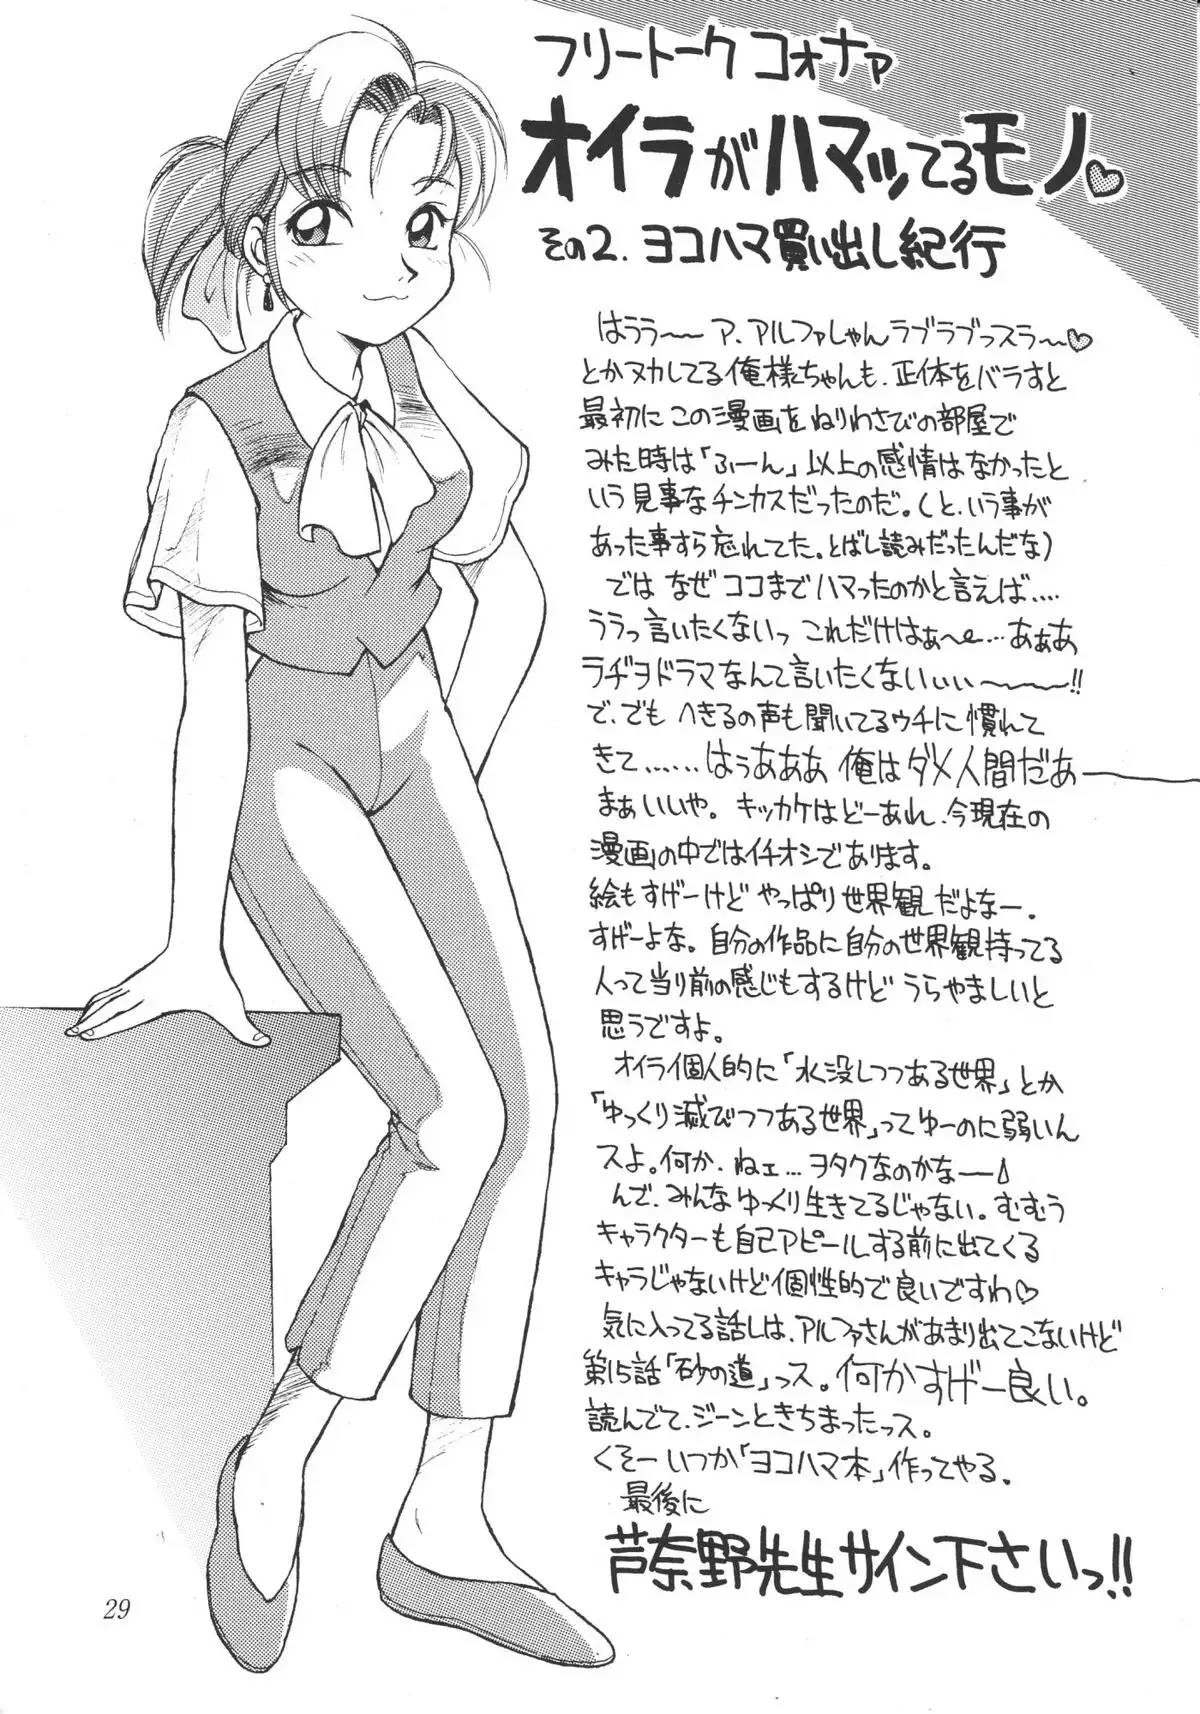 フリートーク コォナァ
オイラがハマッてるモノ♡
その2. ヨコハマ買い出し紀行
はうう〜ア、アルファしゃんラブラブっスラ〜♡
とかヌカしてる俺様ちゃんも、正体をバラすと
最初にこの漫画をねりわさびの部屋で
みた時は「ふーん」以上の感情はなかったと
いう見事なチンカスだったのだ。(と、いう事が
あった事すら忘れてた。とばし読みだったんだな)
では なぜ ココまでハマったのかと言えば....
ううっ言いたくないっ これだけはぁ〜...あぁあ
ラヂヲドラマなんて言いたくないぃぃ〜〜!!
で、でも へきるの声も聞いてるウチに慣れて
きて......はぅあああ 俺はダメ人間だあ――
まぁいいや。キッカケはどーあれ、今現在の
漫画の中ではイチオシであります。
絵もすげーけど やっぱり世界観だよなー.
すげーよな。自分の作品に自分の世界観持ってる
人って当り前の感じもするけど うらやましいと
思うですよ。
オイラ個人的に「水没しつつある世界」とか
「ゆっくり滅びつつある世界」ってゆーのに弱いん
スよ。何か、ねェ...ヲタクなのかなー
んで、みんなゆっくり生きてるじゃない。むむう
キャラクターも自己アピールする前に出てくる
キャラじゃないけど個性的で良いですわ♡
気に入ってる話しは、アルファさんがあまり出てこないけど
第15話「砂の道」っス。何かすげー良い。
読んでて、ジーンときちまったっス。
くそー いつか「ヨコハマ本」作ってやる.
最後に
芦奈野先生サイン下さいっ!!
29